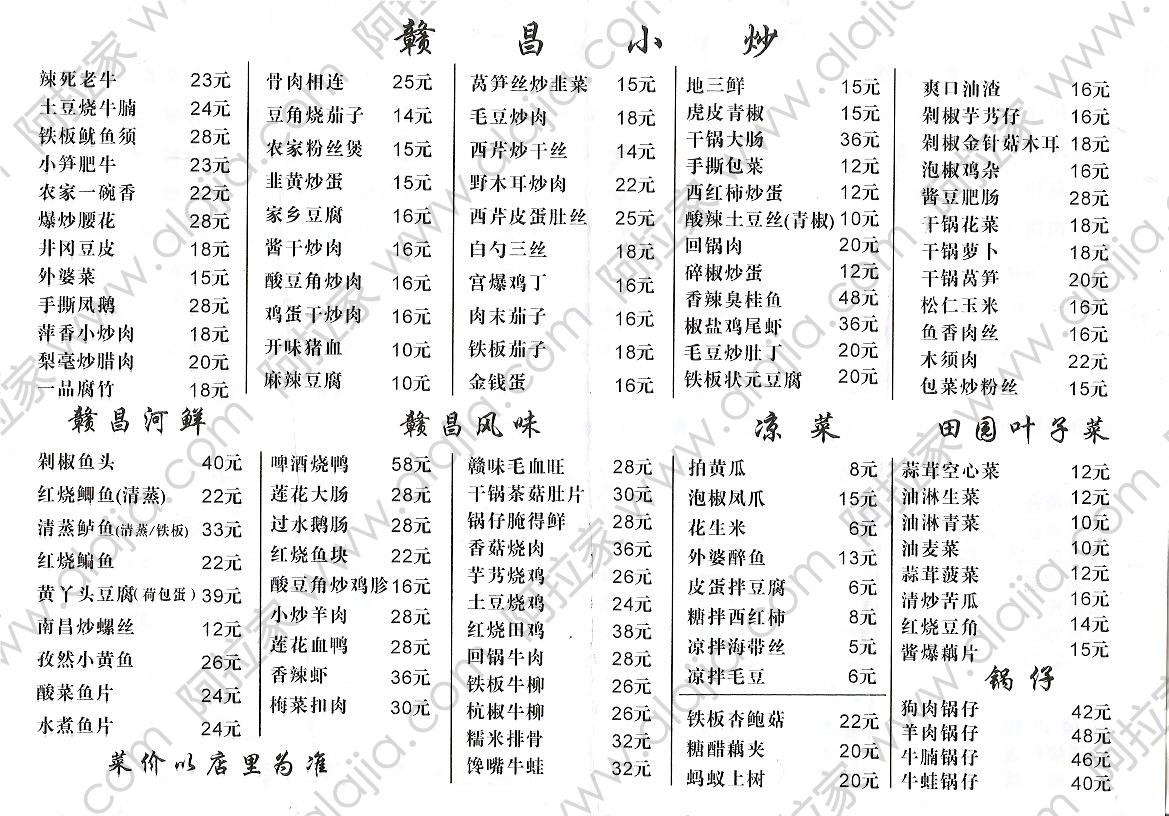 赣昌小炒
辣死老牛 23元
土豆烧牛腩 24元
铁板鱿鱼须 28元
小笋肥牛 23元
农家一碗香 22元
爆炒腰花 28元
井冈豆皮 18元
外婆菜 15元
手撕凤鹅 28元
萍香小炒肉 18元
梨毫炒腊肉 20元
一品腐竹 18元
骨肉相连 25元
豆角烧茄子 14元
农家粉丝煲 15元
韭黄炒蛋 15元
家乡豆腐 16元
酱干炒肉 16元
酸豆角炒肉 16元
鸡蛋干炒肉 16元
开味猪血 10元
麻辣豆腐 10元
莴笋丝炒韭菜 15元
毛豆炒肉 18元
西芹炒干丝 14元
野木耳炒肉 22元
西芹皮蛋肚丝 25元
白勺三丝 18元
宫爆鸡丁 16元
肉末茄子 16元
铁板茄子 18元
金钱蛋 16元
地三鲜 15元
虎皮青椒 15元
干锅大肠 36元
手撕包菜 12元
西红柿炒蛋 12元
酸辣土豆丝(青椒) 10元
回锅肉 20元
碎椒炒蛋 12元
香辣臭桂鱼 48元
椒盐鸡尾虾 36元
毛豆炒肚丁 20元
铁板状元豆腐 20元
爽口油渣 16元
剁椒芋艿仔 16元
剁椒金针菇木耳 18元
泡椒鸡杂 16元
酱豆肥肠 28元
干锅花菜 18元
干锅萝卜 18元
干锅莴笋 20元
松仁玉米 16元
鱼香肉丝 16元
木须肉 22元
包菜炒粉丝 15元
赣昌河鲜
剁椒鱼头 40元
红烧鲫鱼(清蒸) 22元
清蒸鲈鱼(清蒸/铁板) 33元
红烧鳊鱼 22元
黄丫头豆腐(荷包蛋) 39元
南昌炒螺丝 12元
孜然小黄鱼 26元
酸菜鱼片 24元
水煮鱼片 24元
菜价以店里为准
赣昌风味
啤酒烧鸭 58元
莲花大肠 28元
过水鹅肠 28元
红烧鱼块 22元
酸豆角炒鸡胗 16元
小炒羊肉 28元
莲花血鸭 28元
香辣虾 36元
梅菜扣肉 30元
赣味毛血旺 28元
干锅茶菇肚片 30元
锅仔腌得鲜 28元
香菇烧肉 36元
芋艿烧鸡 26元
土豆烧鸡 24元
红烧田鸡 38元
回锅牛肉 28元
铁板牛柳 26元
杭椒牛柳 26元
糯米排骨 32元
馋嘴牛蛙 32元
凉菜
拍黄瓜 8元
泡椒凤爪 15元
花生米 6元
外婆醉鱼 13元
皮蛋拌豆腐 6元
糖拌西红柿 8元
凉拌海带丝 5元
凉拌毛豆 6元
铁板杏鲍菇 22元
糖醋藕夹 20元
蚂蚁上树 20元
田园叶子菜
蒜茸空心菜 12元
油淋生菜 12元
油淋青菜 10元
油麦菜 10元
蒜茸菠菜 12元
清炒苦瓜 16元
红烧豆角 14元
酱爆藕片 15元
锅仔
狗肉锅仔 42元
羊肉锅仔 48元
牛腩锅仔 46元
牛蛙锅仔 40元
阿拉家 www.alajia.com